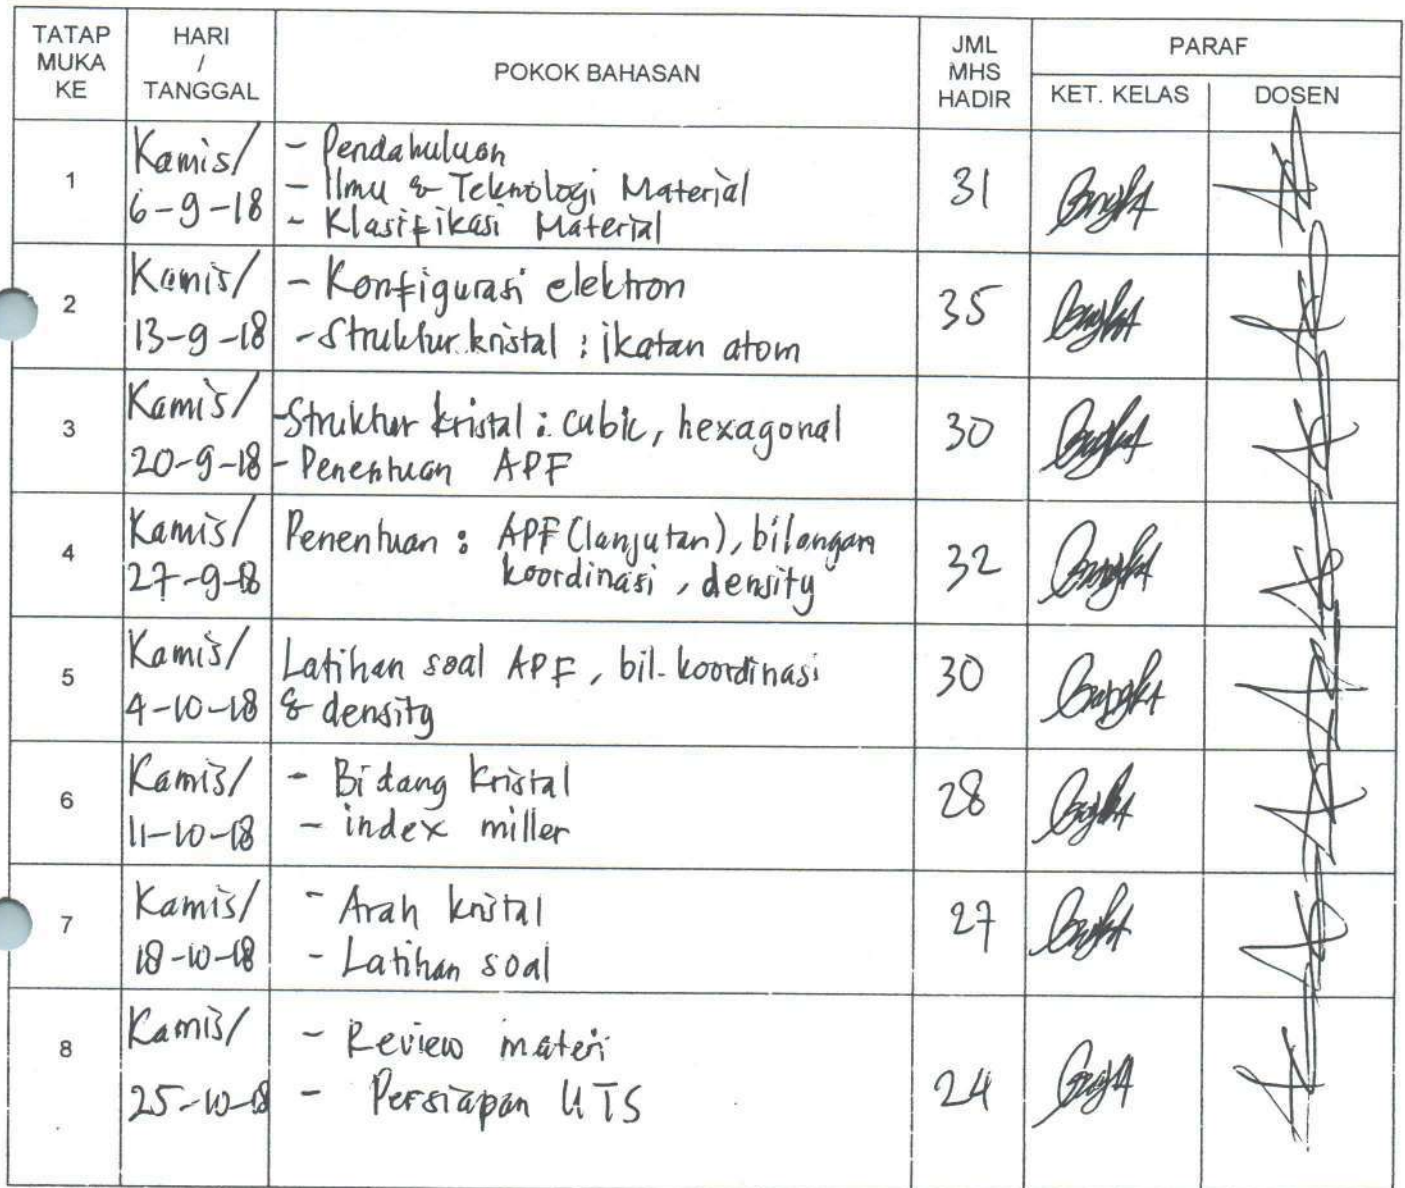 TATAP MUKA KE
HARI / TANGGAL
POKOK BAHASAN
JML MHS HADIR
PARAF
KET. KELAS
DOSEN
1
Kamis/
6-9-18
- Pendahuluan
- Ilmu & Teknologi Material
- Klasifikasi Material
31
2
Kamis/
13-9-18
- Konfigurasi elektron
- Struktur kristal : ikatan atom
35
3
Kamis/
20-9-18
- Struktur kristal : cubic, hexagonal
- Penentuan APF
30
4
Kamis/
27-9-18
Penentuan : APF (lanjutan), bilangan
koordinasi, density
32
5
Kamis/
4-10-18
Latihan soal APF, bil. koordinasi
& density
30
6
Kamis/
11-10-18
- Bidang kristal
- index miller
28
7
Kamis/
18-10-18
- Arah kristal
- Latihan soal
27
8
Kamis/
25-10-18
- Review materi
- Persiapan UTS
24